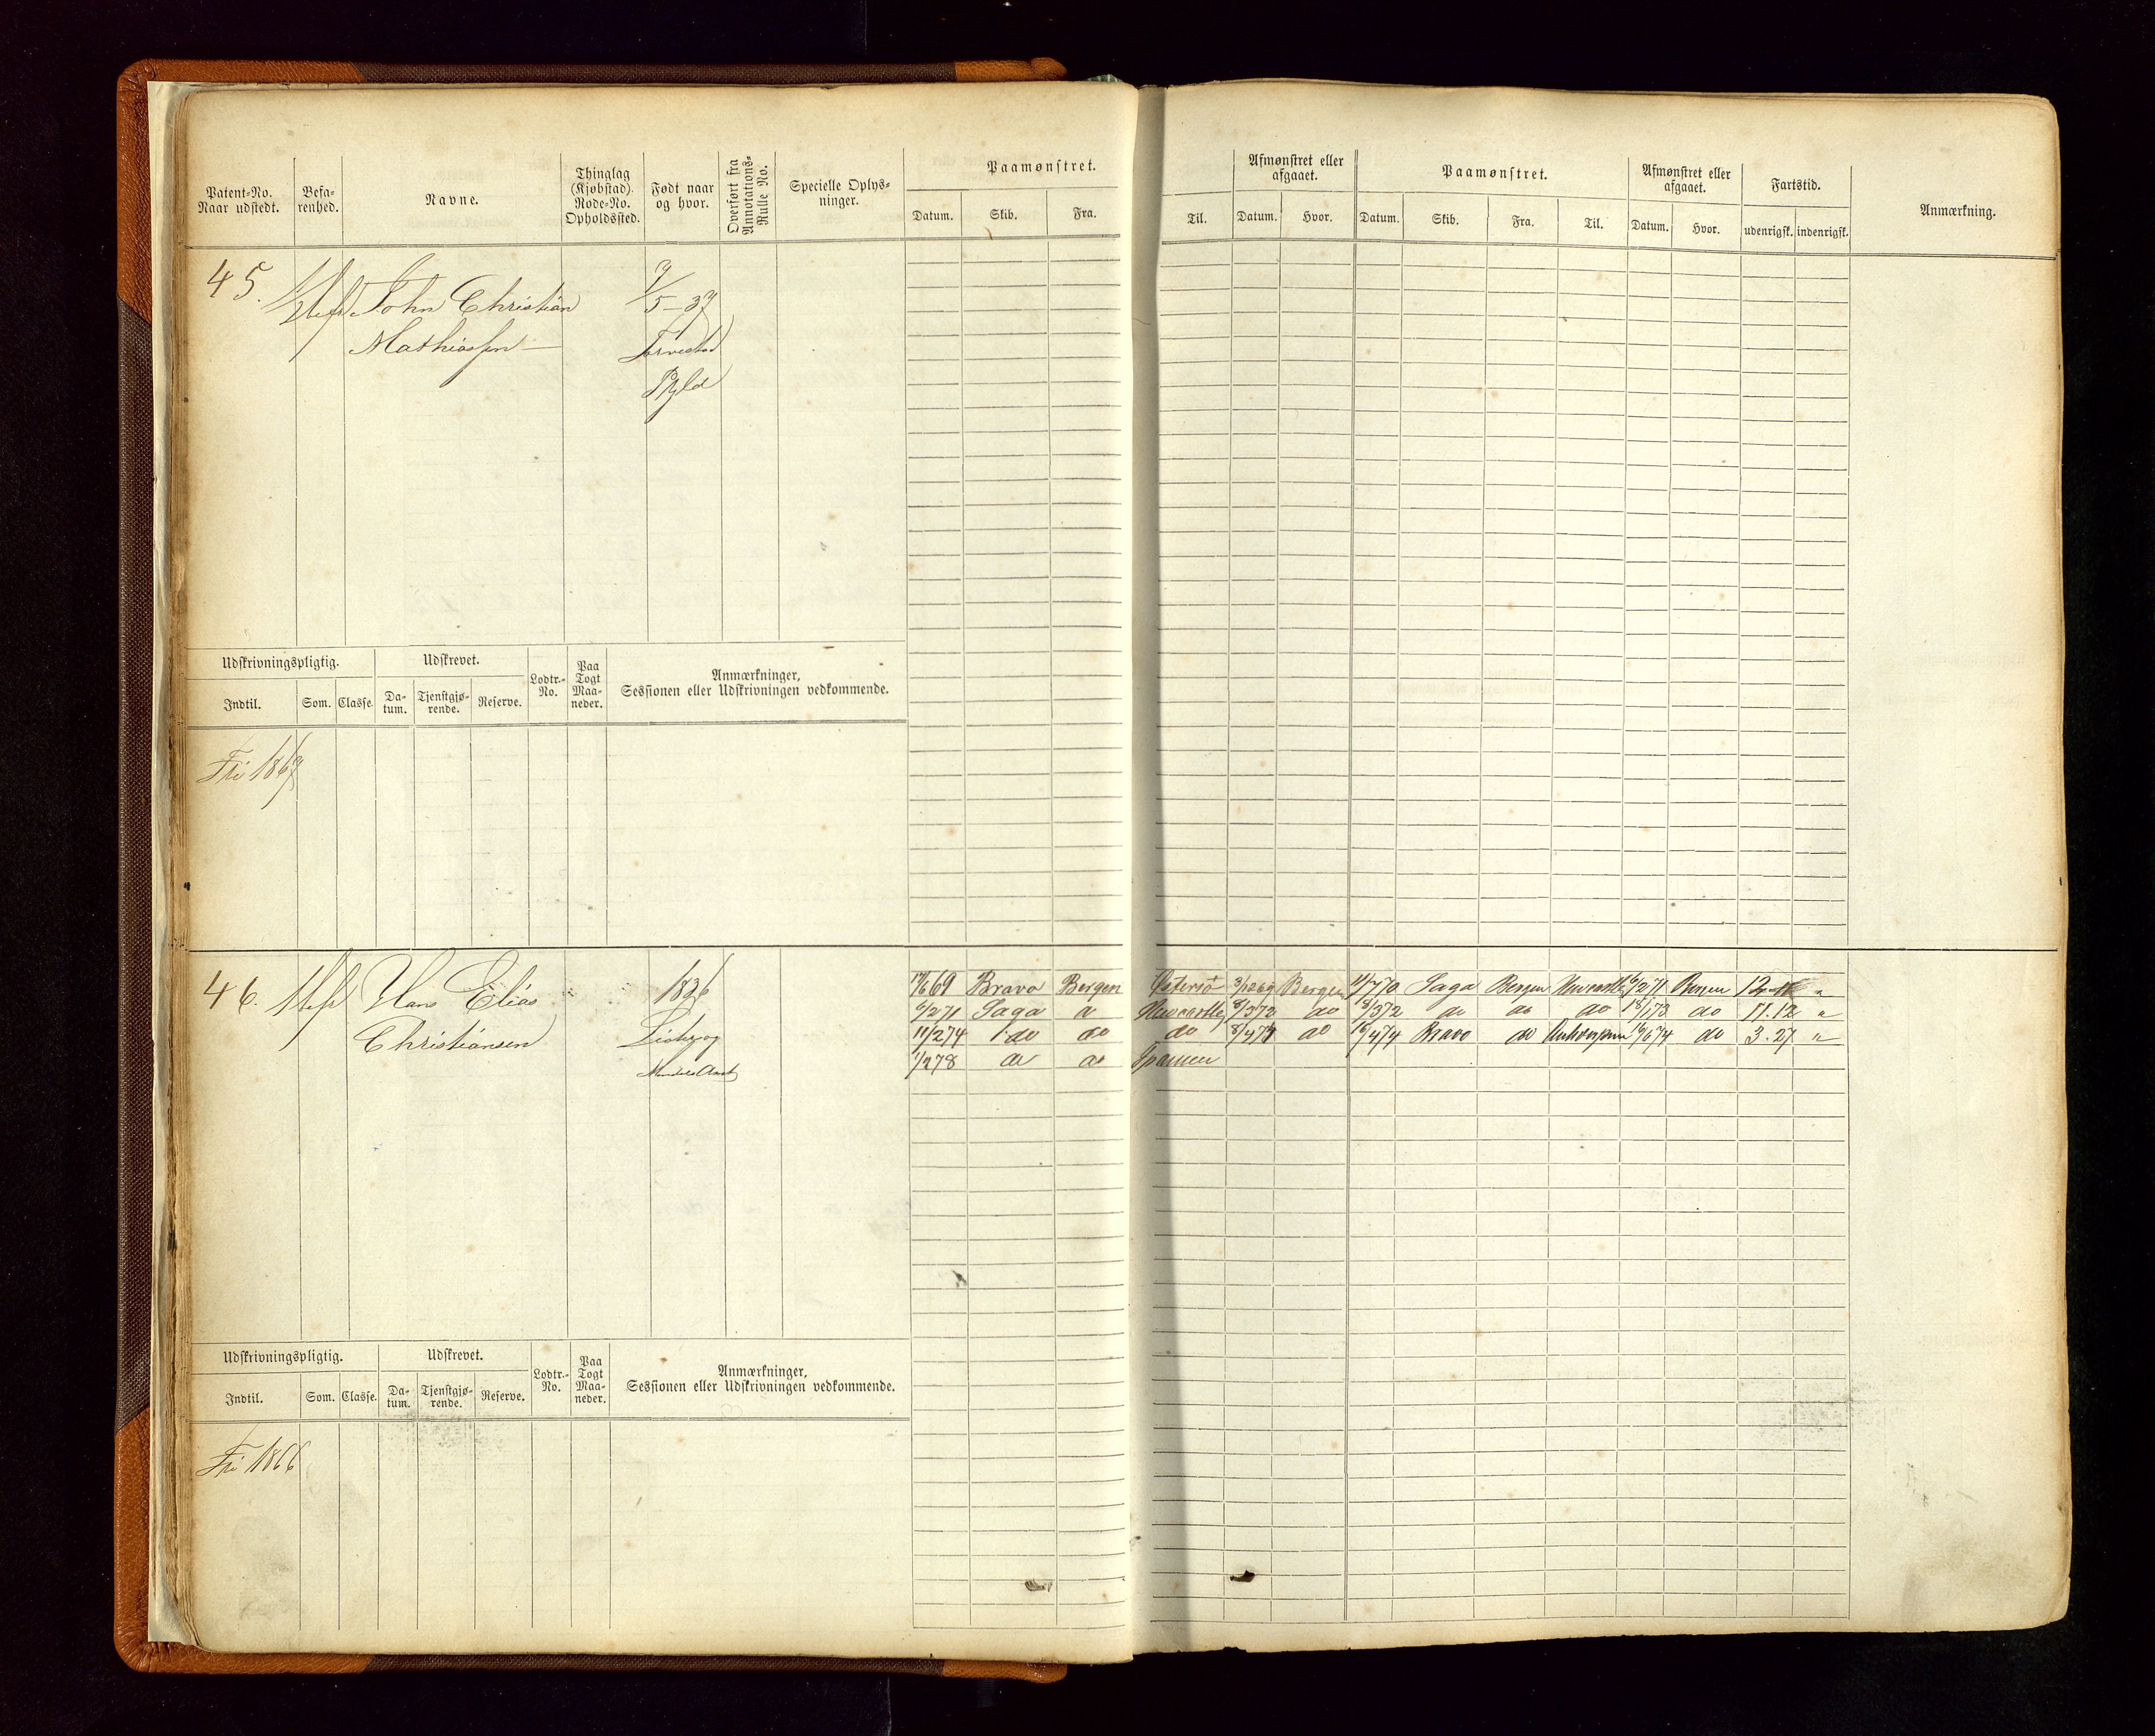 Patent-No. Naar udstedt. Befa-renhed. Navne. Thinglag (Kjøbstad). Rode-No. Opholdssted. Født naar og hvor. Overført fra Annotations-Rulle No. Specielle Oplys-ninger. Paamønstret. Datum. Skib. Fra.
Til. Afmønstret eller afgaaet. Datum. Hvor. Paamønstret. Datum. Skib. Fra. Til. Afmønstret eller afgaaet. Datum. Hvor. Fartstid. udenrigsk. indenrigsk. Anmærkning.
45. John Christian 7/5-37
Mathiassen
Udskrivningspligtig. Udskrevet. Lodtr.-No. Paa Togt Maa-neder. Anmærkninger, Sessionen eller Udskrivningen vedkommende.
Indtil. Som. Classe. Da-tum. Tjenstgjø-rende. Reserve.
Fri 1867
46. Hans Elias 1826 Bravo Bergen Østersø Bergen 11/7 70 Saga Bergen Newcastle 6/2 71 Bergen
Christiansen Lister og 6/2 71 Saga do Newcastle 8/3 72 do 18/3 72 do do do 18/1 73 do 11.12 "
11/2 74 do do do do Bravo do 16/6 74 do 3.27 "
Mandals Amt 1/2 78 do do Spanien
Udskrivningspligtig. Udskrevet. Lodtr.-No. Paa Togt Maa-neder. Anmærkninger, Sessionen eller Udskrivningen vedkommende.
Indtil. Som. Classe. Da-tum. Tjenstgjø-rende. Reserve.
Fri 1866